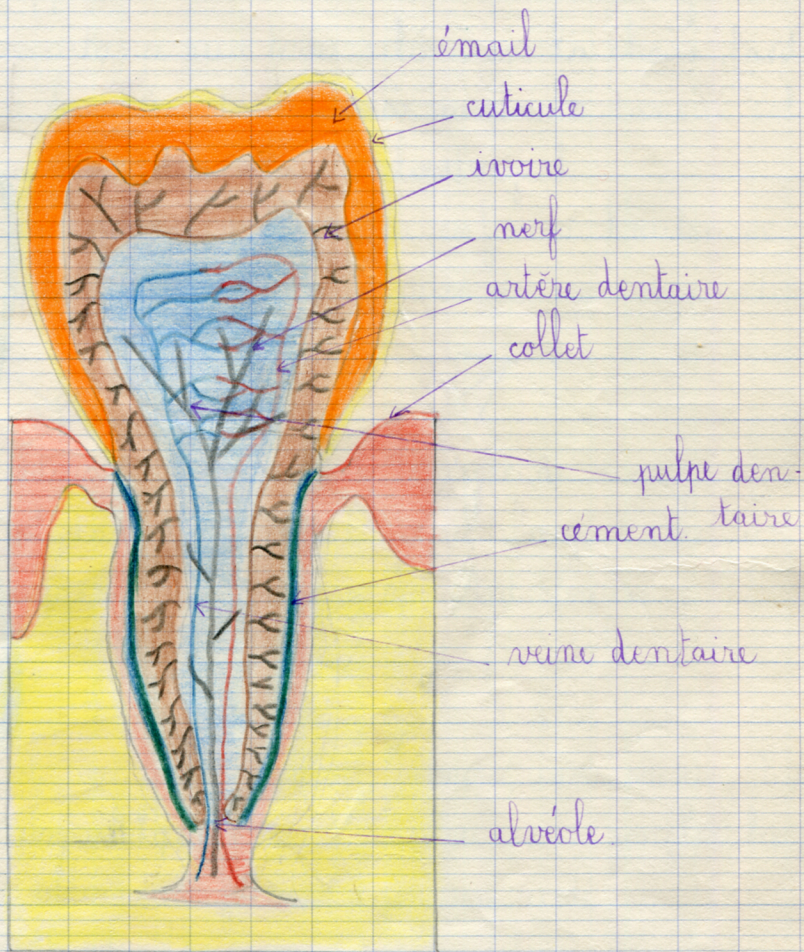 émail
cuticule
ivoire
nerf
artère dentaire
collet
pulpe den-
taire
cément.
veine dentaire
alvéole